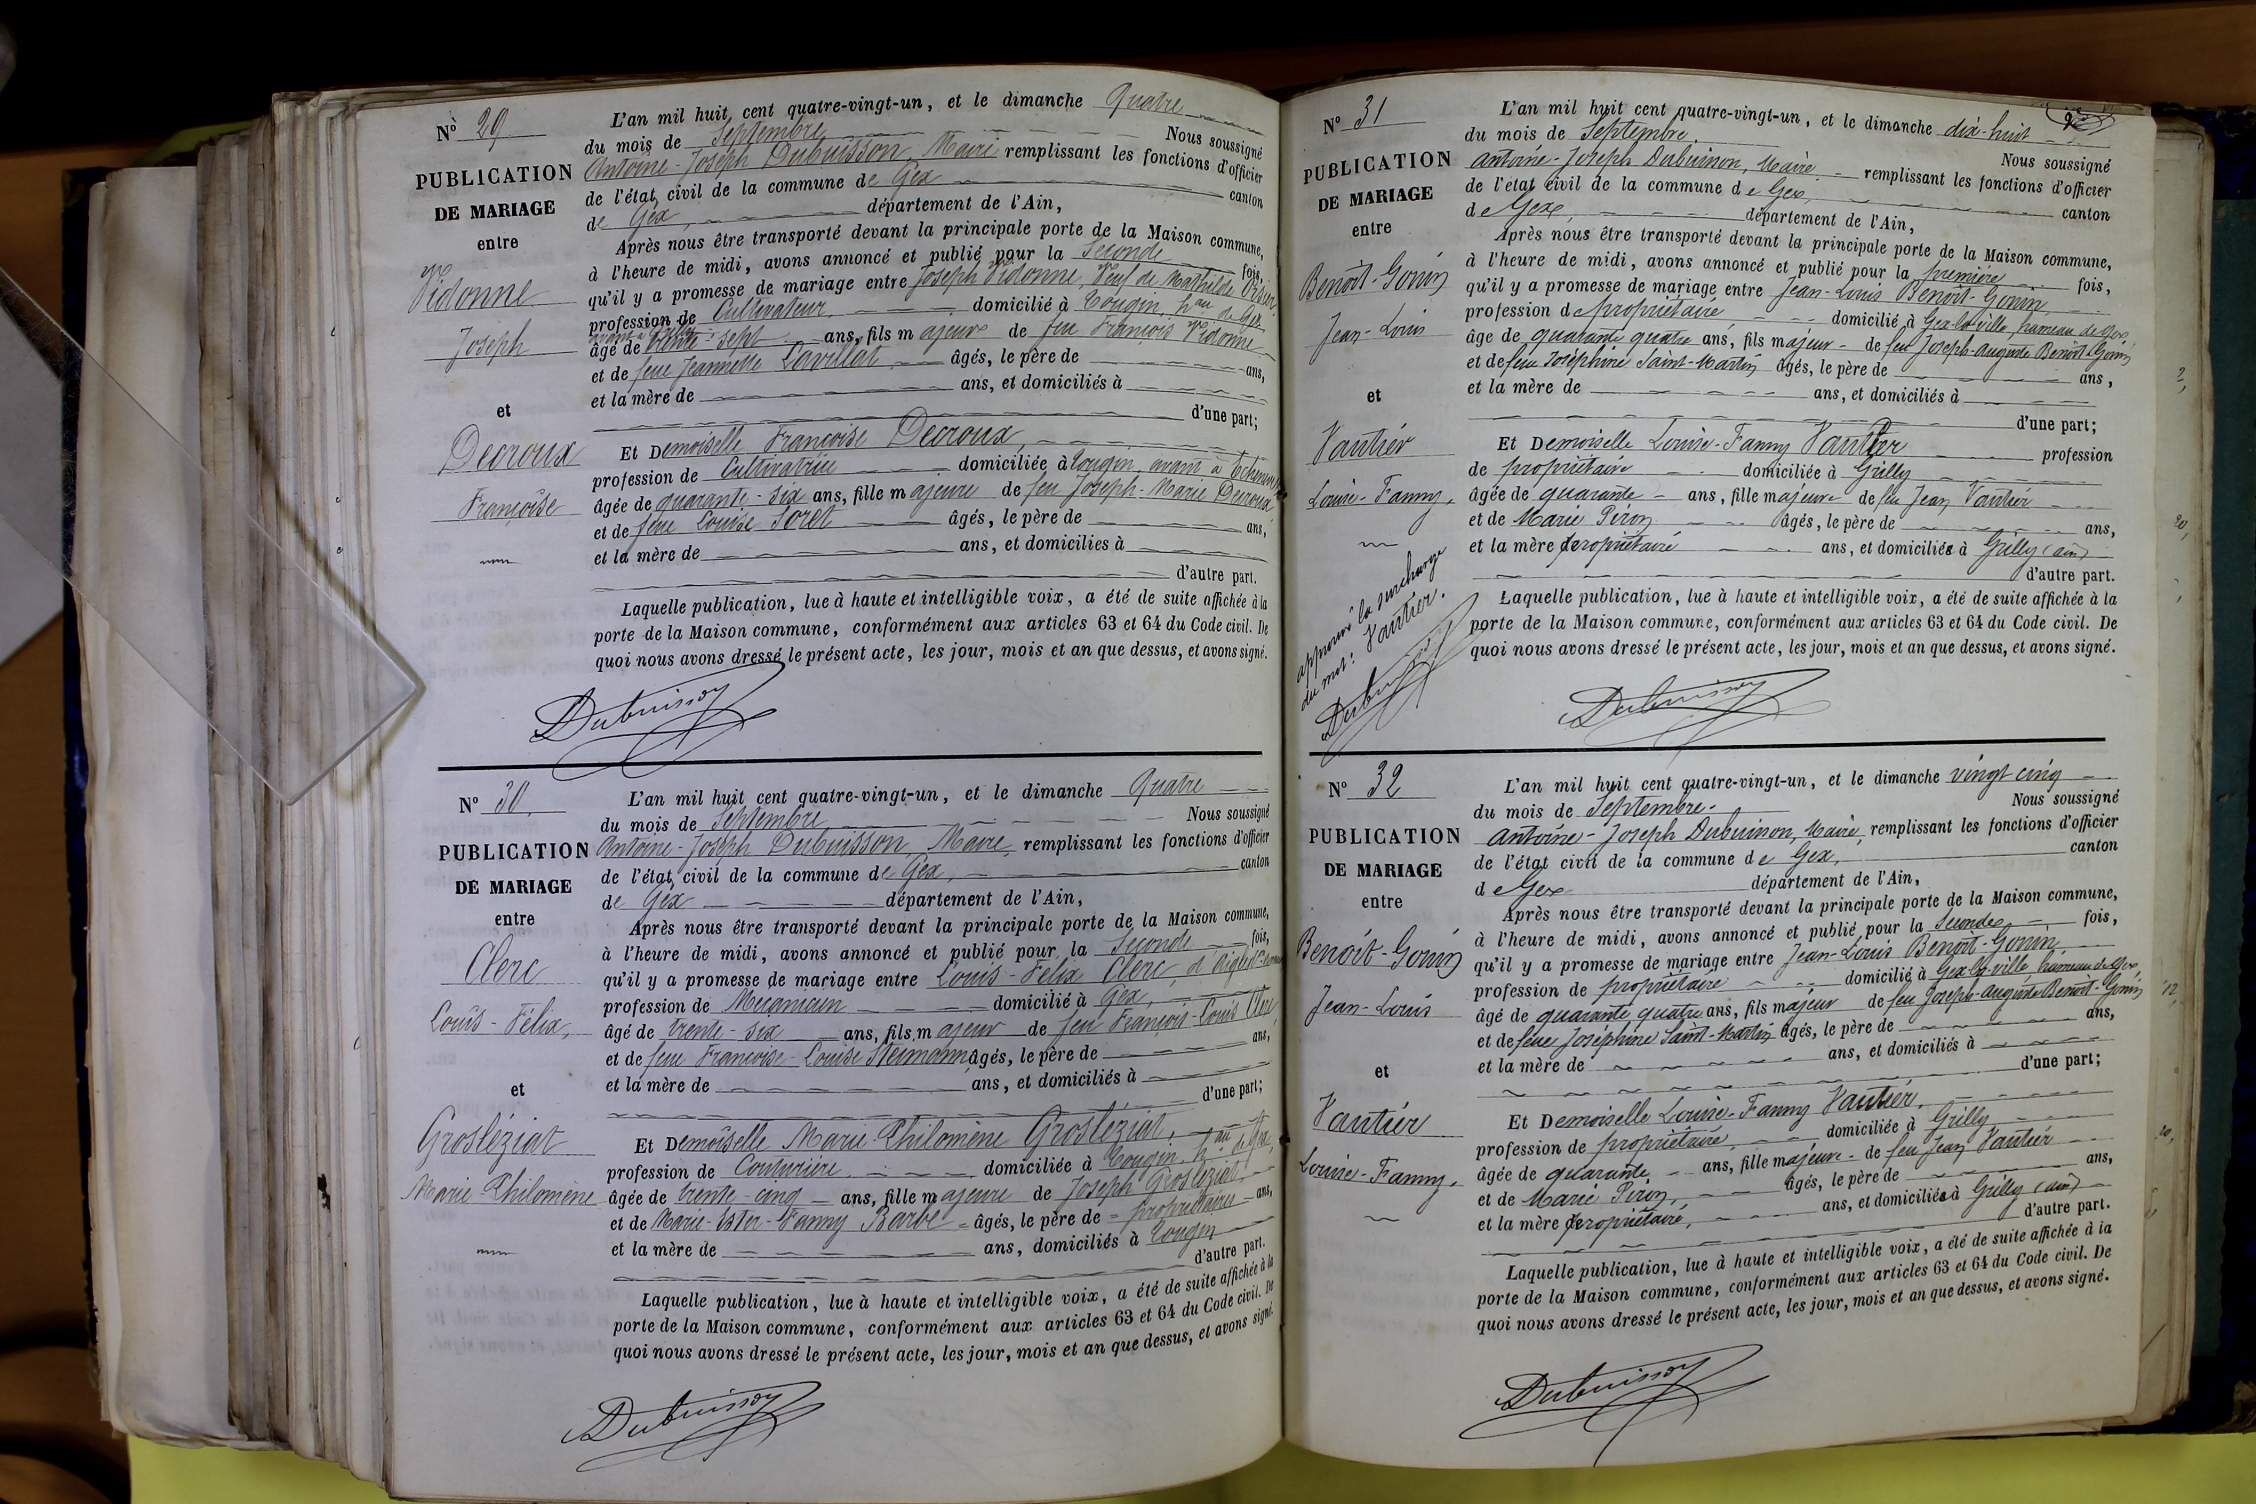 N° 29
PUBLICATION
DE MARIAGE
entre
Vidonne
Joseph
et
Decroux
Françoise
L'an mil huit cent quatre-vingt-un, et le dimanche Quatre
du mois de Septembre Nous soussigné
Antoine-Joseph Dubuisson, Maire remplissant les fonctions d'officier
de l'état civil de la commune de Gex canton
de Gex, département de l'Ain,
Après nous être transporté devant la principale porte de la Maison commune,
à l'heure de midi, avons annoncé et publié pour la Seconde fois,
qu'il y a promesse de mariage entre Joseph Vidonne, Veuf de Mathilde
profession de Cultivateur, domicilié à Tougin, hau de Gex
âgé de sept ans, fils majeur de feu François Vidonne
et de feue Jeannette Lavillat âgés, le père de ans,
et la mère de ans, et domiciliés à
d'une part;
Et Demoiselle Françoise Decroux,
profession de Cultivatrice domiciliée à Tougin, avant à
âgée de quarante-six ans, fille majeure de feu Joseph-Marie Decroux
et de feue Louise Foret âgés, le père de ans,
et la mère de ans, et domiciliés à
d'autre part.
Laquelle publication, lue à haute et intelligible voix, a été de suite affichée à la
porte de la Maison commune, conformément aux articles 63 et 64 du Code civil. De
quoi nous avons dressé le présent acte, les jour, mois et an que dessus, et avons signé.
Dubuisson
N° 30
PUBLICATION
DE MARIAGE
entre
Clerc
Louis-Félix,
et
Grosléziat
Marie-Philomène
L'an mil huit cent quatre-vingt-un, et le dimanche Quatre
du mois de Septembre Nous soussigné
Antoine-Joseph Dubuisson, Maire, remplissant les fonctions d'officier
de l'état civil de la commune de Gex, canton
de Gex département de l'Ain,
Après nous être transporté devant la principale porte de la Maison commune,
à l'heure de midi, avons annoncé et publié pour la Seconde fois,
qu'il y a promesse de mariage entre Louis-Félix Clerc,
profession de Mécanicien domicilié à Gex,
âgé de trente-six ans, fils majeur de feu François-Louis Clerc
et de feue Françoise-Louise Steimann âgés, le père de ans,
et la mère de ans, et domiciliés à
d'une part;
Et Demoiselle Marie-Philomène Grosléziat,
profession de Couturière domiciliée à Tougin, hau de Gex,
âgée de trente-cinq ans, fille majeure de Joseph Grosléziat
et de Marie-Ester-Fanny Barbe âgés, le père de propriétaire ans,
et la mère de ans, domiciliés à Tougin
d'autre part.
Laquelle publication, lue à haute et intelligible voix, a été de suite affichée à la
porte de la Maison commune, conformément aux articles 63 et 64 du Code civil. De
quoi nous avons dressé le présent acte, les jour, mois et an que dessus, et avons signé.
Dubuisson
N° 31
PUBLICATION
DE MARIAGE
entre
Benoît-Gonin
Jean-Louis
et
Vautier
Louise-Fanny,
approuvé la surcharge
du mot: Vautier.
Dubuisson
L'an mil huit cent quatre-vingt-un, et le dimanche dix-huit
du mois de Septembre. Nous soussigné
Antoine-Joseph Dubuisson, Maire remplissant les fonctions d'officier
de l'état civil de la commune de Gex, canton
de Gex, département de l'Ain,
Après nous être transporté devant la principale porte de la Maison commune,
à l'heure de midi, avons annoncé et publié pour la première fois,
qu'il y a promesse de mariage entre Jean-Louis Benoît-Gonin,
profession de propriétaire domicilié à Gex-la-ville, hameau de Gex,
âgé de quarante quatre ans, fils majeur de feu Joseph-Auguste Benoît-Gonin
et de feue Joséphine Saint-Martin âgés, le père de ans,
et la mère de ans, et domiciliés à
d'une part;
Et Demoiselle Louise-Fanny Vautier profession
de propriétaire domiciliée à Grilly
âgée de quarante ans, fille majeure de feu Jean Vautier
et de Marie Piron âgés, le père de ans,
et la mère propriétaire ans, et domiciliée à Grilly (ain)
d'autre part.
Laquelle publication, lue à haute et intelligible voix, a été de suite affichée à la
porte de la Maison commune, conformément aux articles 63 et 64 du Code civil. De
quoi nous avons dressé le présent acte, les jour, mois et an que dessus, et avons signé.
Dubuisson
N° 32
PUBLICATION
DE MARIAGE
entre
Benoît-Gonin
Jean-Louis
et
Vautier
Louise-Fanny,
L'an mil huit cent quatre-vingt-un, et le dimanche vingt cinq
du mois de Septembre. Nous soussigné
Antoine-Joseph Dubuisson, Maire, remplissant les fonctions d'officier
de l'état civil de la commune de Gex, canton
de Gex département de l'Ain,
Après nous être transporté devant la principale porte de la Maison commune,
à l'heure de midi, avons annoncé et publié pour la Seconde, fois,
qu'il y a promesse de mariage entre Jean-Louis Benoît-Gonin,
profession de propriétaire domicilié à Gex-la-ville hameau de Gex,
âgé de quarante quatre ans, fils majeur de feu Joseph-Auguste Benoît-Gonin
et de feue Joséphine Saint-Martin âgés, le père de ans,
et la mère de ans, et domiciliés à
d'une part;
Et Demoiselle Louise-Fanny Vautier,
profession de propriétaire, domiciliée à Grilly
âgée de quarante, ans, fille majeure de feu Jean Vautier
et de Marie Piron, âgés, le père de ans,
et la mère propriétaire, ans, et domiciliée à Grilly (ain)
d'autre part.
Laquelle publication, lue à haute et intelligible voix, a été de suite affichée à la
porte de la Maison commune, conformément aux articles 63 et 64 du Code civil. De
quoi nous avons dressé le présent acte, les jour, mois et an que dessus, et avons signé.
Dubuisson